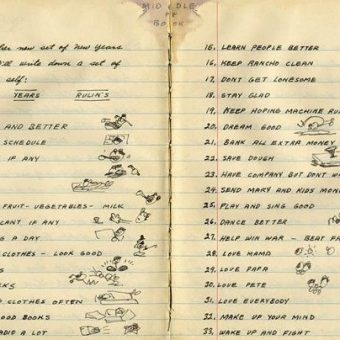 MIDDLE
OF
BOOK
her new set of New Years
I'll write down a set of
self:
YEARS RULIN'S
AND BETTER
SCHEDULE
IF ANY
FRUIT - VEGETABLES - MILK
CANT IF ANY
G A DAY
CLOTHES - LOOK GOOD
KS
D CLOTHES OFTEN
OOD BOOKS
ADIO A LOT
15. LEARN PEOPLE BETTER
16. KEEP RANCHO CLEAN
17. DONT GET LONESOME
18. STAY GLAD
19. KEEP HOPING MACHINE RU
20. DREAM GOOD
21. BANK ALL EXTRA MONEY
22. SAVE DOUGH
23. HAVE COMPANY BUT DONT W
24. SEND MARY AND KIDS MONE
25. PLAY AND SING GOOD
26. DANCE BETTER
27. HELP WIN WAR - BEAT FA
28. LOVE MAMA
29. LOVE PAPA
30. LOVE PETE
31. LOVE EVERYBODY
32. MAKE UP YOUR MIND
33. WAKE UP AND FIGHT